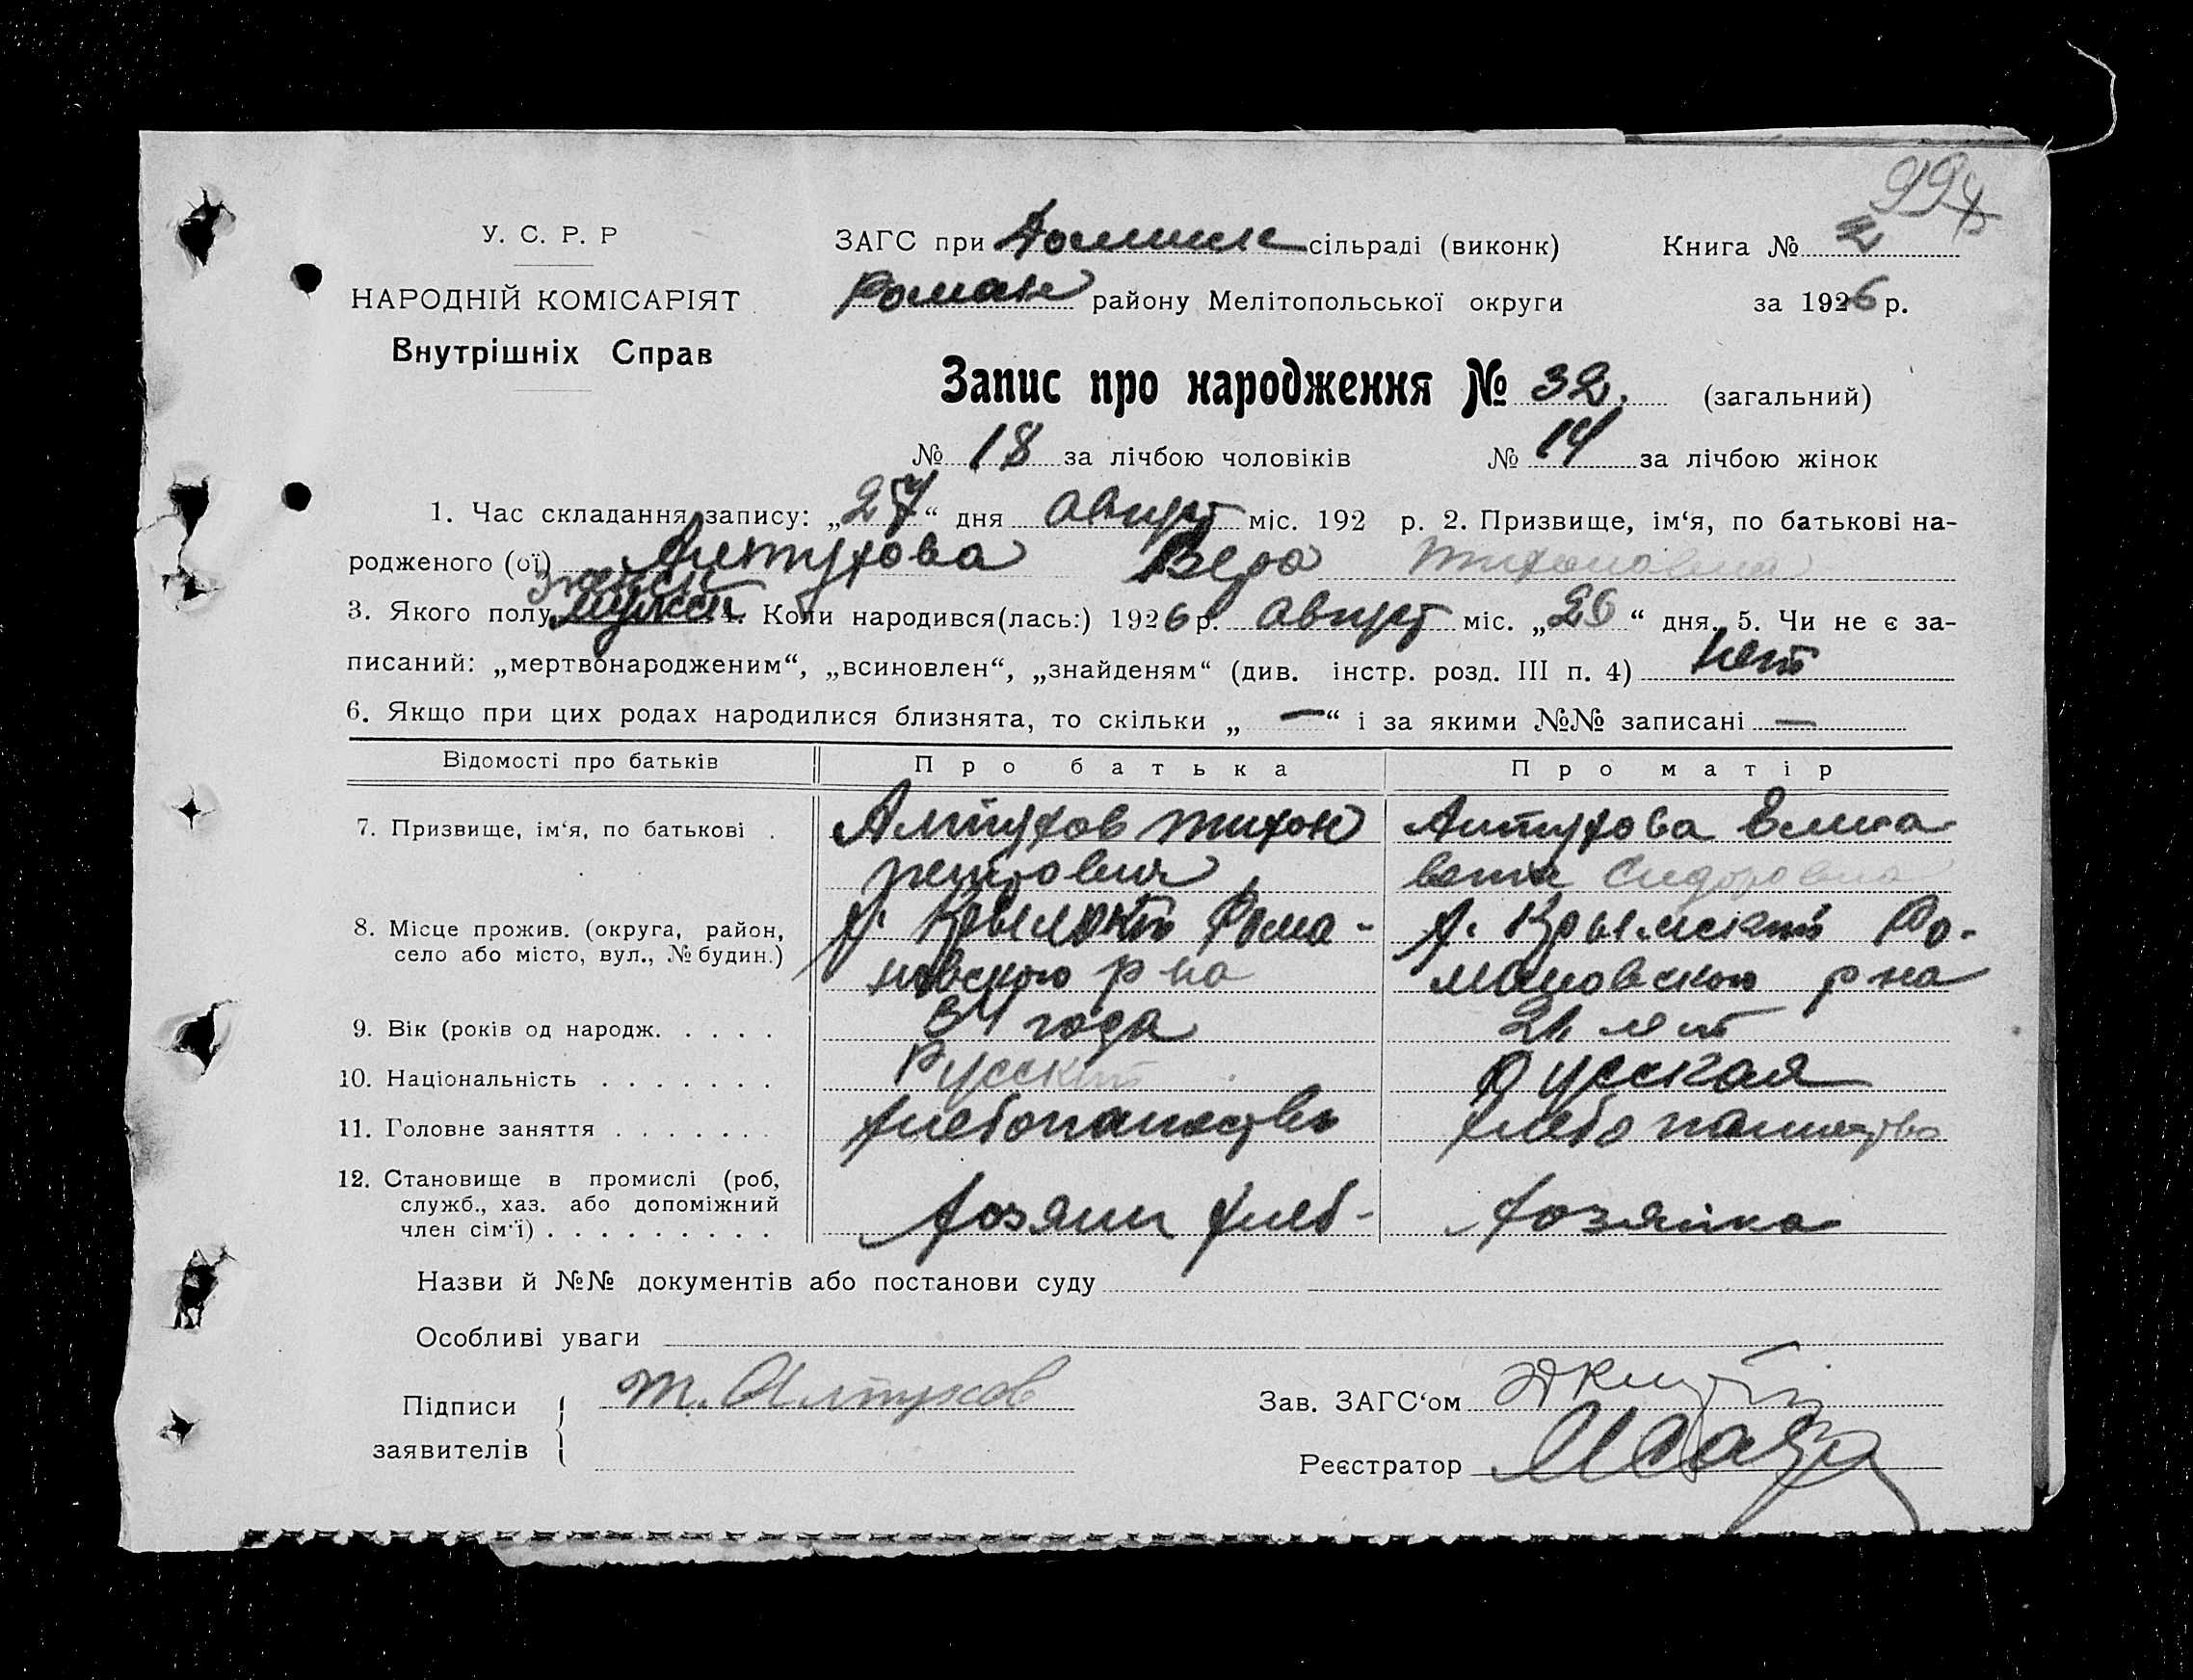 994
У. С. Р. Р
НАРОДНІЙ КОМІСАРІЯТ
Внутрішніх Справ
ЗАГС при сільраді (виконк) Книга № 2
Роман району Мелітопольської округи за 1926 р.
Запис про народження № 32. (загальний)
№ 18 за лічбою чоловіків № 14 за лічбою жінок
1. Час складання запису: „27“ дня август міс. 192 р. 2. Призвище, ім‘я, по батькові на-
родженого (ої) Алтухова Вера Тихоновна
женск
3. Якого полу мужск 4. Коли народився(лась:) 1926 р. август міс. „26“ дня. 5. Чи не є за-
писаний: „мертвонародженим“, „всиновлен“, „знайденям“ (див. інстр. розд. III п. 4) нет
6. Якщо при цих родах народилися близнята, то скільки „ — “ і за якими №№ записані —
Відомості про батьків Про батька Про матір
7. Призвище, ім‘я, по батькові . Алтухов Тихон Алтухова Елиза-
вета Сидоровна
8. Місце прожив. (округа, район, х. Крымский Рома- х. Крымский Ро-
село або місто, вул., № будин.) новского р на мановского р на
9. Вік (років од народж. . . . . 34 года 21 лет
10. Національність . . . . . . . Русский Русская
11. Головне заняття . . . . . . . хлебопашество хлебопашество
12. Становище в промислі (роб,
служб., хаз. або допоміжний
член сім‘ї) . . . . . . . . . хозяин хлеб- хозяйка
Назви й №№ документів або постанови суду
Особливі уваги
Підписи заявителів Т. Алтухов
Зав. ЗАГС‘ом
Реєстратор